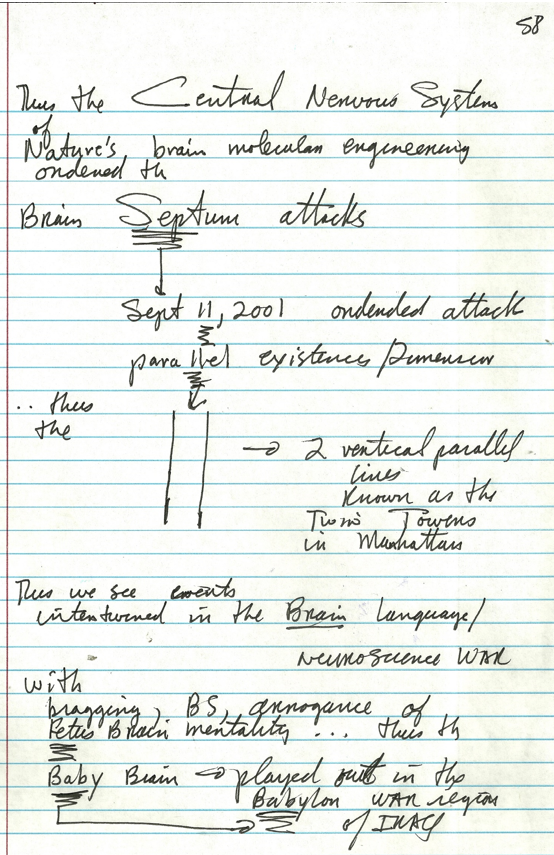 58
Thus the Central Nervous System
of
Nature's brain molecular engineering
ordered th
Brain Septum attacks
Sept 11, 2001 ordended attack
parallel existences/Dimension
.. thus
the
2 vertical parallel
lines
Known as the
Twin Towers
in Manhattan
Thus we see events
intertwined in the Brain language/
neuroscience WAR
with
bragging, BS, arrogance of
Fetus Brain mentality ... thus th
Baby Brain played out in the
Babylon WAR region
of IRAQ